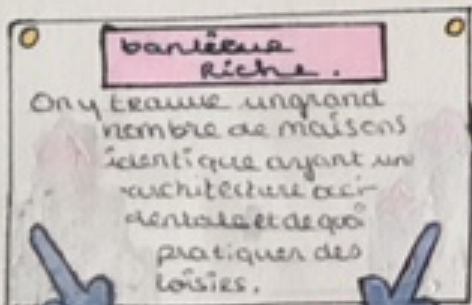 banlieue
Riche.
On y trouve un grand
nombre de maisons
identique ayant un
architecture occi-
dentale et de quoi
pratiquer des
loisies.